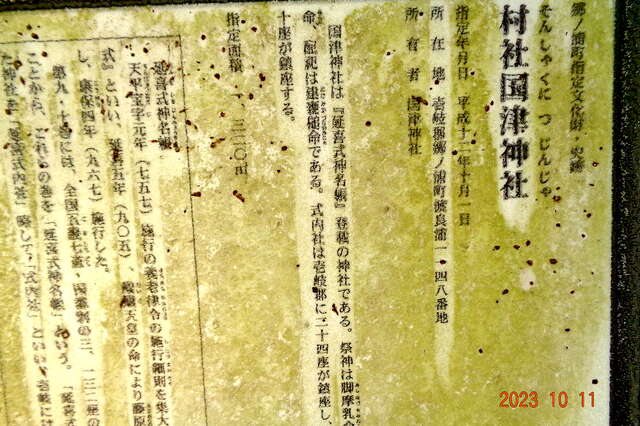 郷ノ浦町指定文化財・史跡
そんしゃくに つ じんじゃ
村社国津神社
指定年月日 平成十二年十月一日
所在地 壱岐郡郷ノ浦町渡良浦一一四八番地
所有者 国津神社
国津神社は『延喜式神名帳』登載の神社である。祭神は脚摩乳
命、配祀は建甕槌命である。式内社は壱岐郡に二十四座が鎮座し、
十座が鎮座する。
指定面積
延喜式神名帳
天平宝字元年(七五七)施行の養老律令の施行細則を集大
式』といい、延喜五年(九〇五)、醍醐天皇の命により藤原
し、康保四年(九六七)施行した。
第九、十巻には、全国五畿七道、
ことから、これらの巻を「延喜式神名帳」という。「延喜式
た神社を「延喜式内社」略して「式内社」といい、壱岐には
2023 10 11